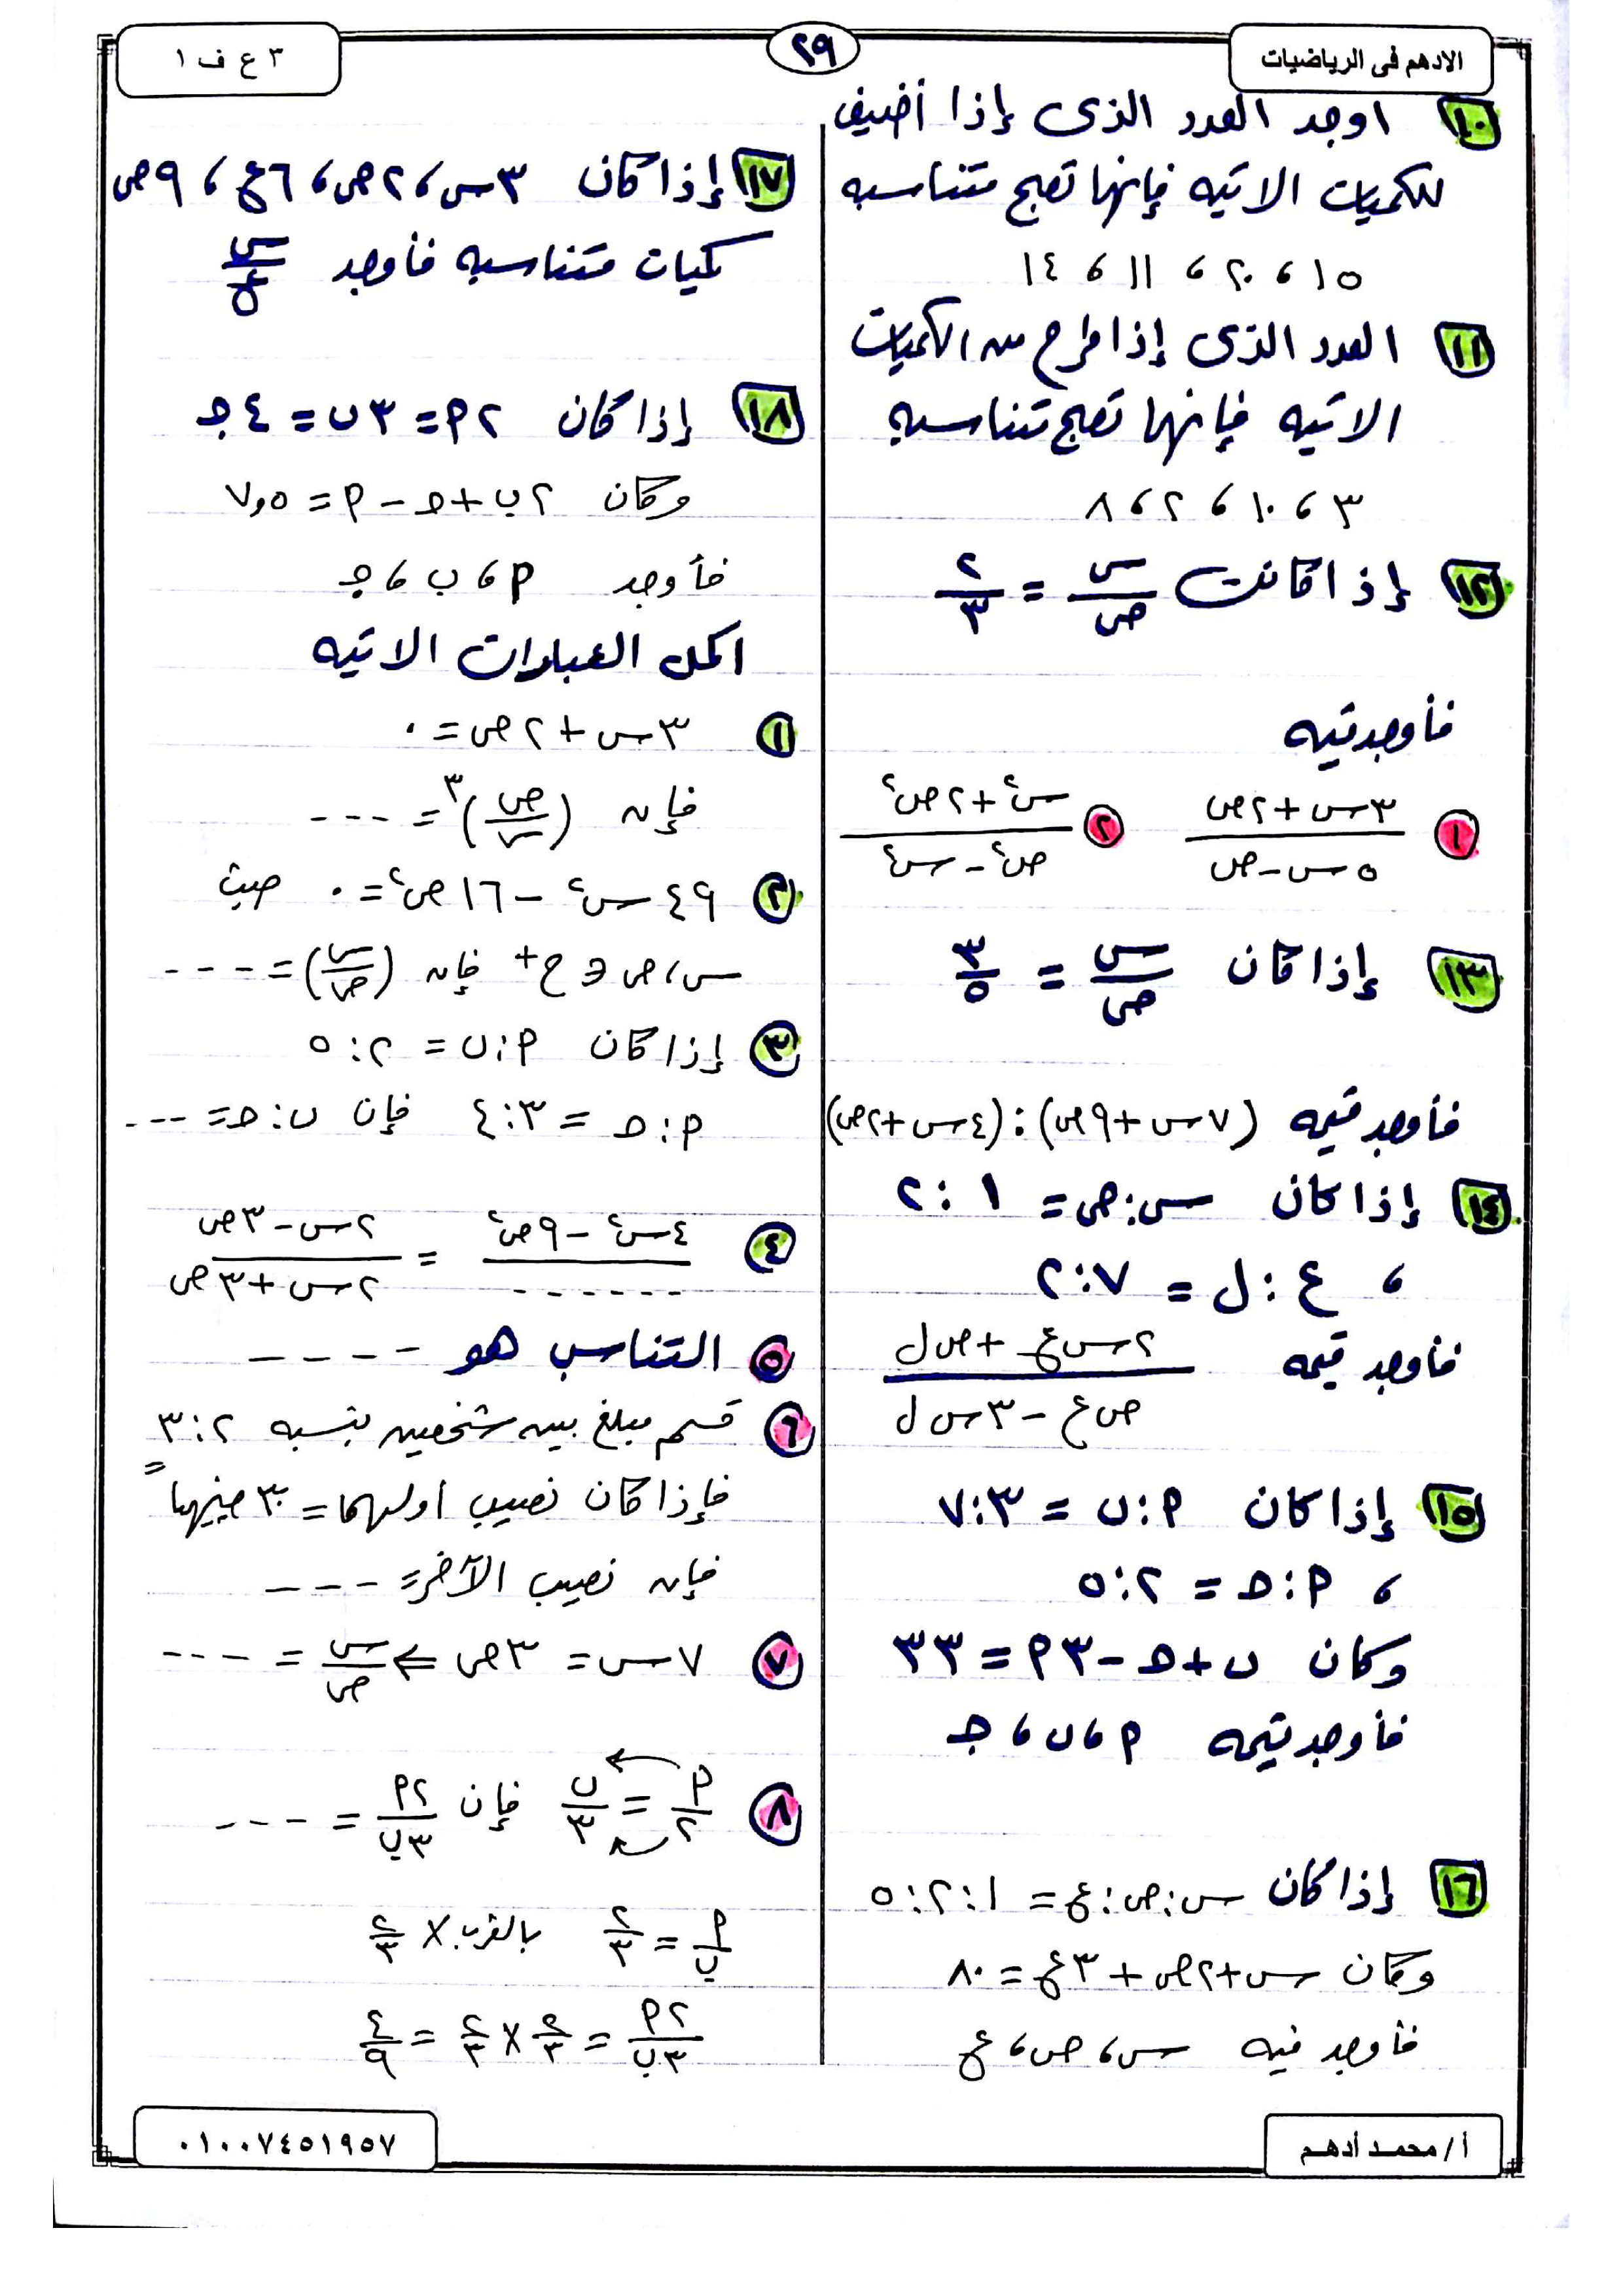 الادهم فى الرياضيات
٢٩
٣ ع ف ١
١٠ اوجد العدد الذى إذا أضيف
للكميات الاتيه فإنها تصبح متناسبه
١٥ ، ٢٠ ، ١١ ، ١٤
١١ العدد الذى إذا طرح من الكميات
الاتيه فإنها تصبح متناسبه
٣ ، ١٠ ، ٢ ، ٨
١٢ إذا كانت س/ص = ٢/٣
فأوجد قيمه
١ (٣س + ٢ص)/(٥س - ص) ٢ (س٢ + ٢ص٢)/(ص٢ - س٢)
١٣ إذا كان س/ص = ٣/٥
فأوجد قيمه (٧س + ٩ص) : (٤س + ٢ص)
١٤ إذا كان س : ص = ١ : ٢
، ع : ل = ٧ : ٢
فأوجد قيمه (٢س ع + ص ل)/(ص ع - ٣س ل)
١٥ إذا كان P : ب = ٣ : ٧
، P : ج = ٢ : ٥
وكان ب + ج - ٣P = ٣٣
فأوجد قيمه P ، ب ، ج
١٦ إذا كان س : ص : ع = ١ : ٢ : ٥
وكان س + ٢ص + ٣ع = ٨٠
فأوجد قيمه س ، ص ، ع
١٧ إذا كان ٣س ، ٢ص ، ٦ع ، ٩ص
كميات متناسبه فأوجد س/ع
١٨ إذا كان ٢P = ٣ب = ٤ج
وكان ٢ب + ج - P = ٧,٥
فأوجد P ، ب ، ج
اكمل العبارات الاتيه
١ ٣س + ٢ص = ٠
فإن (ص/س)٣ = ---
٢ ٤٩س٢ - ١٦ص٢ = ٠ حيث
س ، ص ∈ ح+ فإن (س/ص) = ---
٣ إذا كان P : ب = ٢ : ٥
P : ج = ٣ : ٤ فإن ب : ج = ---
٤ (٤س٢ - ٩ص٢)/------ = (٢س - ٣ص)/(٢س + ٣ص)
٥ التناسب هو ----
٦ قسم مبلغ بين شخصين بنسبه ٢ : ٣
فإذا كان نصيب اولهما = ٣٠ جنيها
فإن نصيب الآخر = ---
٧ ٧س = ٣ص ⇐ س/ص = ---
٨ P/٢ = ب/٣ فإن ٢P/٣ب = ---
P/ب = ٢/٣ بالضرب × ٢/٣
٢P/٣ب = ٢/٣ × ٢/٣ = ٤/٩
أ / محمد أدهم
٠١٠٠٧٤٥١٩٥٧